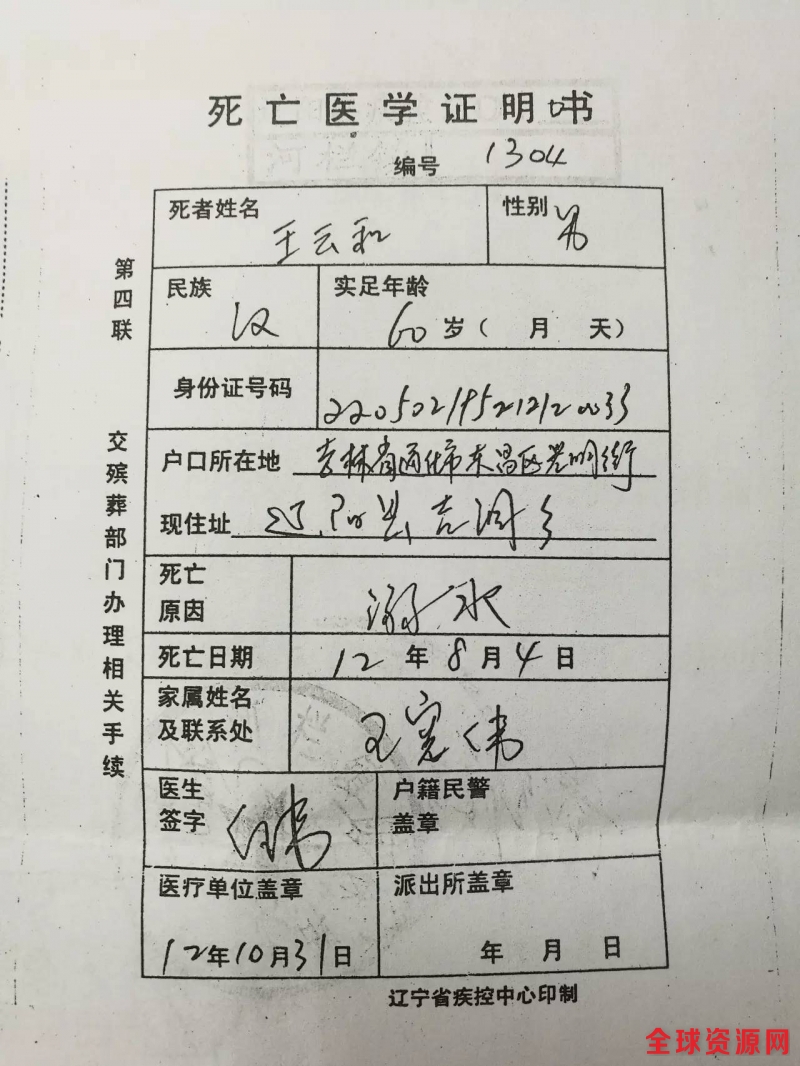 死亡医学证明书
编号 1304
死者姓名 王云和
性别 男
第四联
民族 汉
实足年龄 60岁( 月 天)
身份证号码 220502195212120033
交殡葬部门办理相关手续
户口所在地 吉林省通化市东昌区光明街
现住址 辽阳县吉洞乡
死亡原因 溺水
死亡日期 12年8月4日
家属姓名
及联系处 王宪伟
医生
签字
户籍民警
盖章
医疗单位盖章
12年10月31日
派出所盖章
年 月 日
辽宁省疾控中心印制
全球资源网